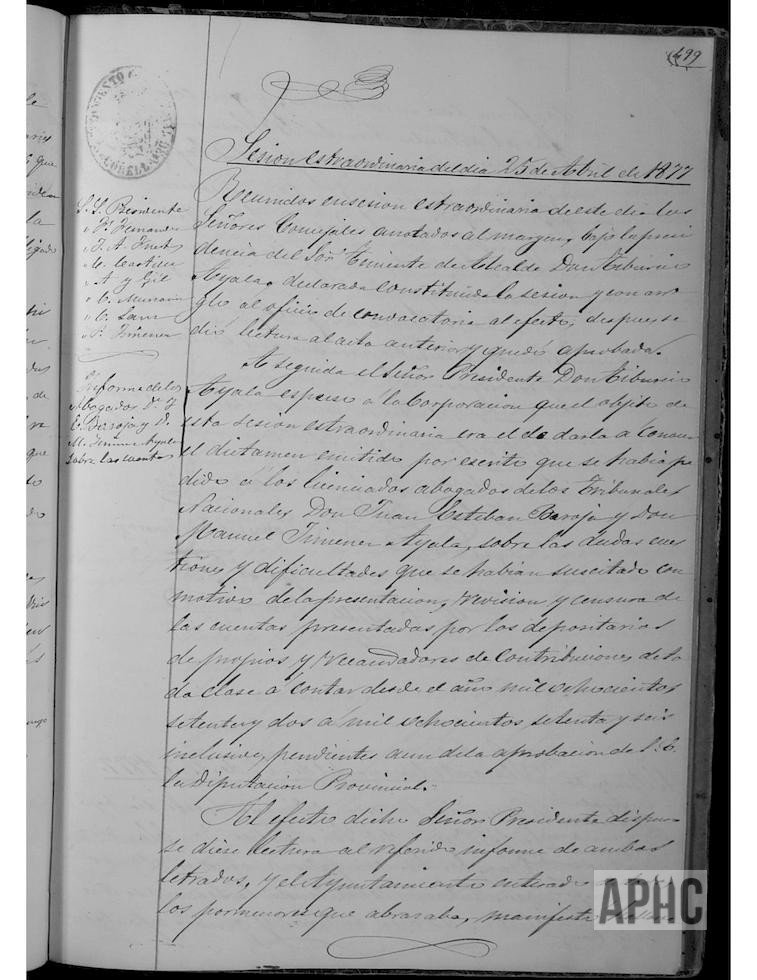 499
Sesion estraordinaria del dia 25 de Abril de 1877
S. S. Presidente
" P. Fernandez
" C. Castilla
" A y Gil
" C. Sanz
" P. Jimenez
Informe de los
Abogados Dn. J.
E. Baroja y D.
M. Jimenez Ayala
sobre las cuentas
Reunidos en sesion estraordinaria de este dia los
Señores Concejales anotados al margen, bajo la presi
dencia del Sor. Teniente de Alcalde Don Tiburcio
Ayala, declarada constituida la sesion y con arre
glo al oficio de convocatoria al efecto, despues se
dió lectura al acta anterior y quedó aprobada.
A seguida el Señor Presidente Don Tiburcio
Ayala espuso á la Corporacion que el objeto de
esta sesion estraordinaria era el de darla á conocer
el dictamen emitido por escrito que se habia pe
dido á los licenciados abogados de los Tribunales
Nacionales Don Juan Esteban Baroja y Don
Manuel Jimenez Ayala, sobre las dudas cues
tiones y dificultades que se habian suscitado con
motivo de la presentacion, revision y censura de
las cuentas presentadas por los depositarios
de propios y recaudadores de Contribuciones de to
da clase á contar desde el año mil ochocientos
setenta y dos á mil ochocientos setenta y seis
inclusive, pendientes aun de la aprobacion de S. E.
la Diputacion Provincial.
Al efecto dicho Señor Presidente dispuso
se diese lectura al referido informe de ambos
letrados, y el Ayuntamiento enterado
los pormenores que abrazaba, manifestó
APHC